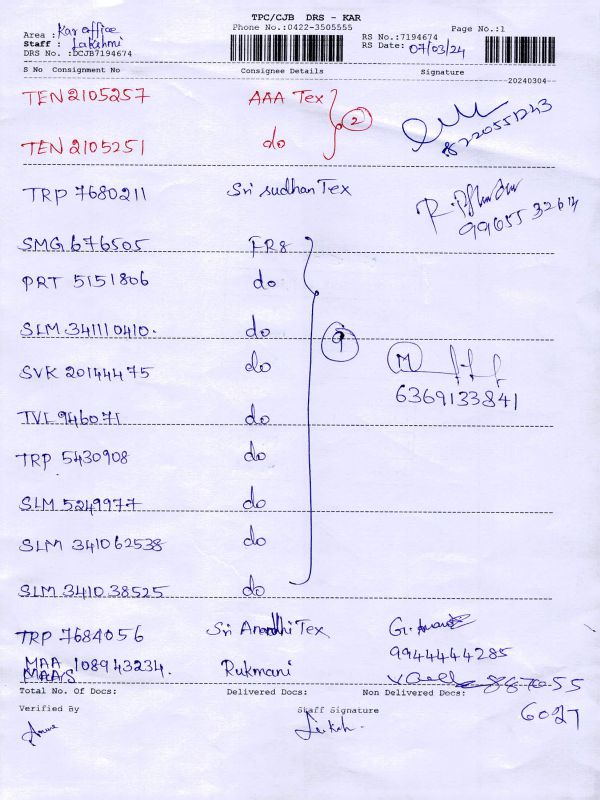 TPC/CJB DRS - KAR
Phone No.:0422-3505555
Page No.:1
Area : Kar office
Staff : Lakshmi
DRS No. :DCJB7194674
RS No.:7194674
RS Date: 07/03/24
S No Consignment No Consignee Details Signature
20240304
TEN 2105257 AAA Tex
2
TEN 2105251 do
TRP 7680211 Sri sudhan Tex
SMG 676505 FR8
PRT 5151806 do
SLM 341110410. do
9
SVK 20144475 do
M
6369133841
TVL 946071 do
TRP 5430908 do
SLM 5249977 do
SLM 341062538 do
SLM 341038525 do
TRP 7684056 Sri Anandhi Tex
9944444285
MAA 108943234. Rukmani
MAAS
Total No. Of Docs: Delivered Docs: Non Delivered Docs:
6027
Verified By Staff Signature